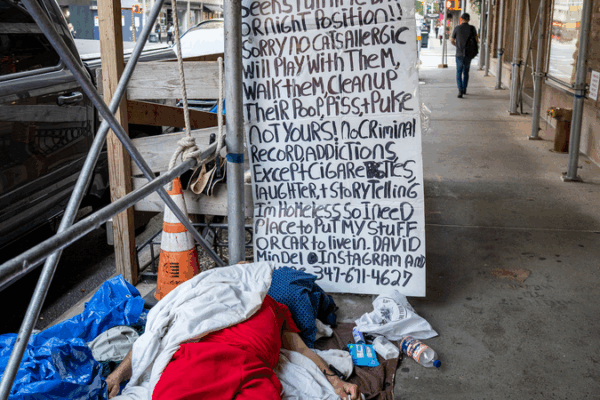 or Night Position!!
Sorry no cats Allergic
Will Play with Them,
Walk them, cleanup
Their Poop, Piss, + Puke
NOT YOURS! No Criminal
Record, Addictions
Except Cigarettes,
laughter, + Storytelling
I'm Homeless so I need
Place to Put My Stuff
or car to live in. David
@ Instagram And